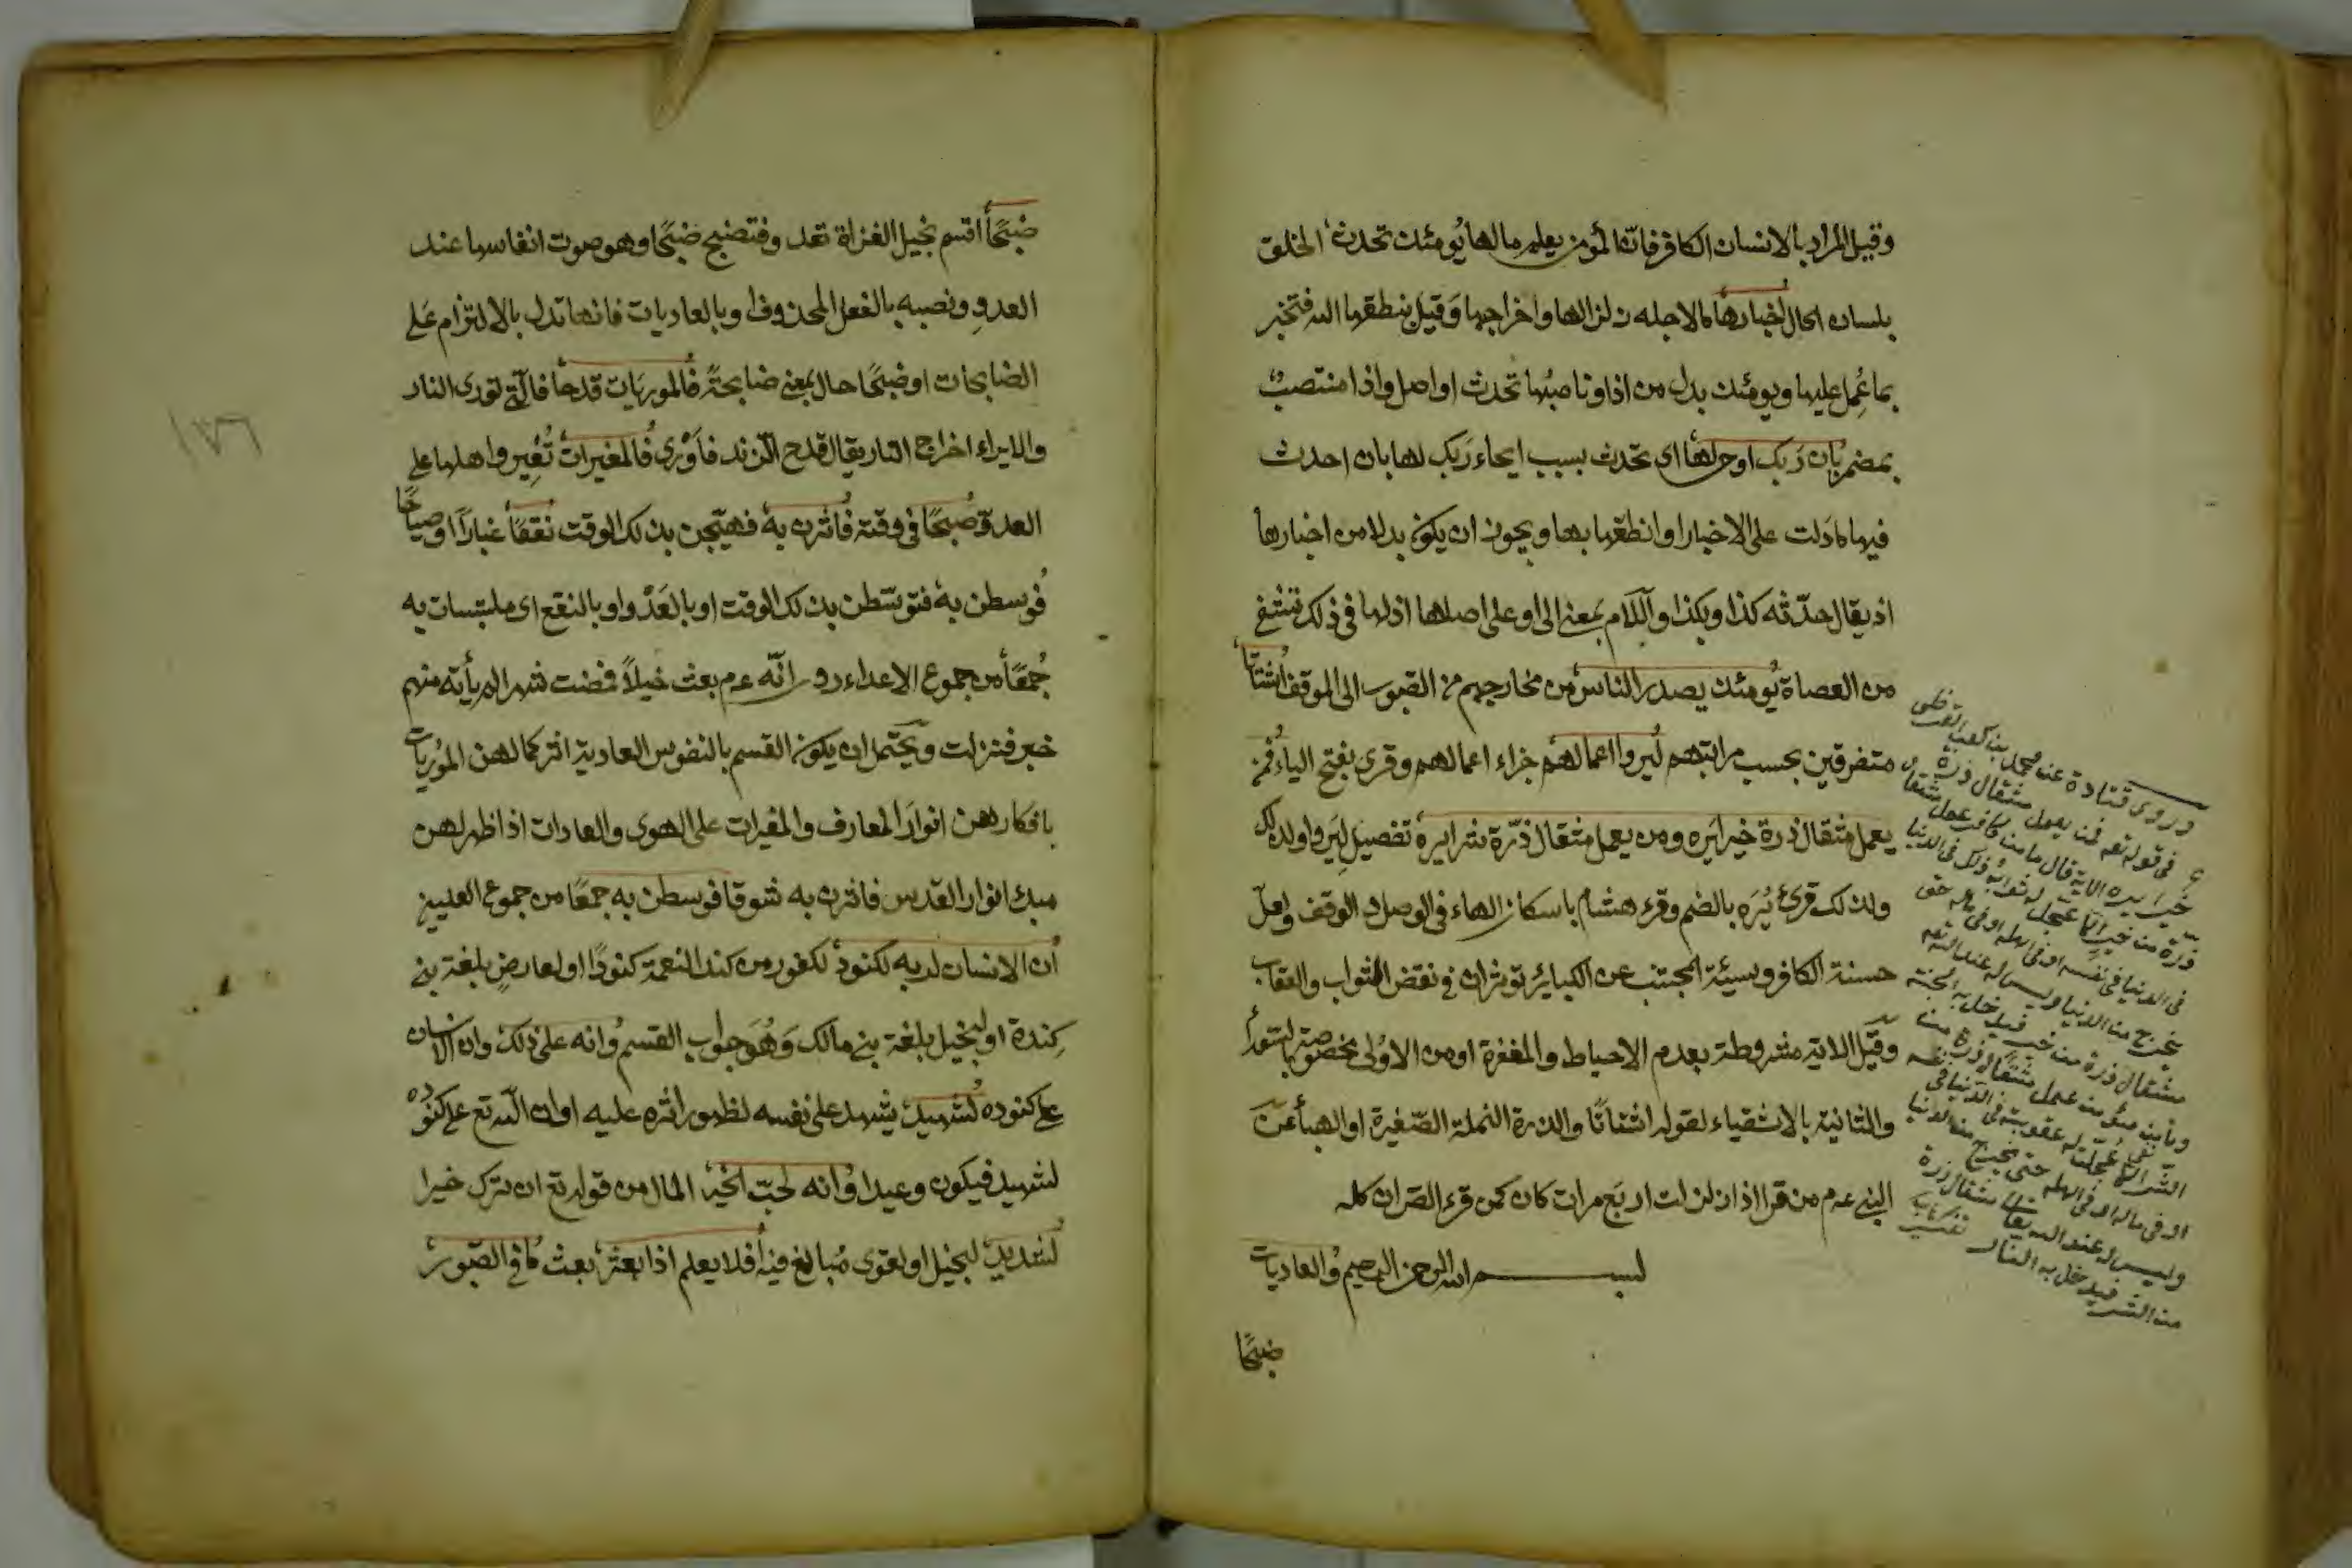 وقيل المراد بالانسان الكافر فان المؤمن يعلم ما لها يومئذ تحدث الخلق
بلسان الحال اخبارها ما لاجله زلزالها واخراجها وقيل ينطقها الله فتخبر
بما عمل عليها ويومئذ بدل من اذا وناصبها تحدث او اصل واذا منتصب
بمضمر بان ربك اوحى لها اى تحدث بسبب ايحاء ربك لها بان احدث
فيها ما دلت على الاخبار او انطقها بها ويجوز ان يكون بدلا من اخبارها
اذ يقال حدثته كذا وبكذا واللام بمعنى الى او على اصلها اذ لها فى ذلك تشفى
من العصاة يومئذ يصدر الناس من مخارجهم من القبور الى الموقف اشتاتا
متفرقين بحسب مراتبهم ليروا اعمالهم جزاء اعمالهم وقرى بفتح الياء فمن
يعمل مثقال ذرة خيرا يره ومن يعمل مثقال ذرة شرا يره تفصيل ليروا ولذلك
ولذلك قرئ يره بالضم وقرء هشام باسكان الهاء فى الوصل والوقف ولعل
حسنة الكافر وسيئة المجتنب عن الكبائر تؤثران فى نقض الثواب والعقاب
وقيل الاية مشروطة بعدم الاحباط والمغفرة او من الاولى مخصوصة بالسعداء
والثانية بالاشقياء لقوله اشتاتا والذرة النملة الصغيرة او الهباء عن
النبى عم من قرا اذا زلزلت اربع مرات كان كمن قرء القران كله
بسم الله الرحمن الرحيم والعاديات
ضبحا
وروى قتادة عن محمد بن كعب القرظى
فى قوله تع فمن يعمل مثقال ذرة
خيرا يره الاية قال ما من كافر عمل مثقال
ذرة من خير الا عجل له ثواب ذلك فى الدنيا
فى الدنيا فى نفسه او فى اهله او فى ماله حتى
يخرج من الدنيا وليس له عند الله تع
مثقال ذرة من خير فيدخل به الجنة
وما من مؤمن عمل مثقال ذرة من
الشر الا عجلت له عقوبته فى الدنيا فى نفسه
او فى ماله او فى اهله حتى يخرج من الدنيا
وليس له عند الله تعالى مثقال ذرة
من الشر فيدخل به النار
ضبحا اقسم بخيل الغزاة تعدو فتضبح ضبحا وهو صوت انفاسها عند
العدو ونصبه بالفعل المحذوف او بالعاديات فانها تدل بالالتزام على
الضابحات او ضبحا حال بمعنى ضابحة فالموريات قدحا فالتى تورى النار
والايراء اخراج النار يقال قدح الزند فاورى فالمغيرات تغير واهلها على
العدو صبحا فى وقته فاثرن به فهيجن بذلك الوقت نقعا غبارا او صياحا
فوسطن به فتوسطن بذلك الوقت او بالعدو او بالنقع اى ملتبسات به
جمعا من جموع الاعداء روى انه عم بعث خيلا فمضت شهر لم ياته منهم
خبر فنزلت ويحتمل ان يكون القسم بالنفوس العادية اثر كمالهن الموريات
بافكارهن انوار المعارف والمغيرات على الهوى والعادات اذا ظهر لهن
مبدء انوار القدس فاثرن به شوقا فوسطن به جمعا من جموع العليين
ان الانسان لربه لكنود لكفور من كند النعمة كنودا او لعاص بلغة بنى
كندة او لبخيل بلغة بنى مالك وهو جواب القسم وانه على ذلك وان الانسان
على كنوده لشهيد يشهد على نفسه لظهور اثره عليه او ان الله تع على كنوده
لشهيد فيكون وعيدا وانه لحب الخير المال من قوله تع ان ترك خيرا
لشديد لبخيل او لقوى مبالغ فيه افلا يعلم اذا بعثر بعث ما فى القبور
١٧٦